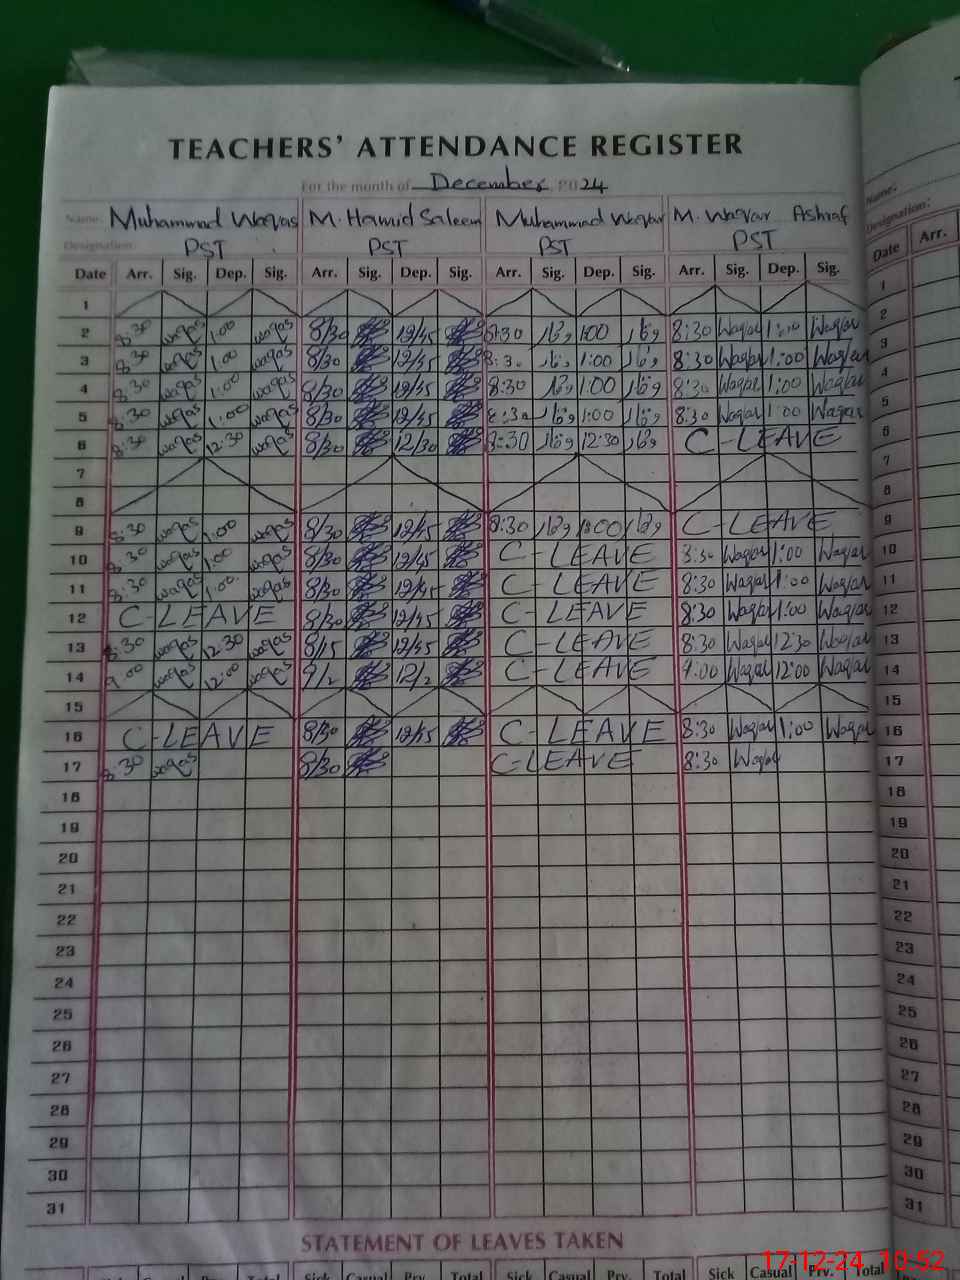 TEACHERS' ATTENDANCE REGISTER
For the month of December 2024
Name: Muhammad Waqas M. Hamid Saleem Muhammad Waqar M. Waqar Ashraf
Designation: PST PST PST PST
Date Arr. Sig. Dep. Sig. Arr. Sig. Dep. Sig. Arr. Sig. Dep. Sig. Arr. Sig. Dep. Sig.
1
2 8:30 waqas 1:00 waqas 8/30 12/45 8:30 وقار 1:00 وقار 8:30 Waqar 1:00 Waqar
3 8:30 waqas 1:00 waqas 8/30 12/45 8:30 وقار 1:00 وقار 8:30 Waqar 1:00 Waqar
4 8:30 waqas 1:00 waqas 8/30 12/45 8:30 وقار 1:00 وقار 8:30 Waqar 1:00 Waqar
5 8:30 waqas 1:00 waqas 8/30 12/45 8:30 وقار 1:00 وقار 8:30 Waqar 1:00 Waqar
6 8:30 waqas 12:30 waqas 8/30 12/30 8:30 وقار 12:30 وقار C-LEAVE
7
8
9 8:30 waqas 1:00 waqas 8/30 12/45 8:30 وقار 1:00 وقار C-LEAVE
10 8:30 waqas 1:00 waqas 8/30 12/45 C-LEAVE 8:30 Waqar 1:00 Waqar
11 8:30 waqas 1:00 waqas 8/30 12/45 C-LEAVE 8:30 Waqar 1:00 Waqar
12 C-LEAVE 8/30 12/45 C-LEAVE 8:30 Waqar 1:00 Waqar
13 8:30 waqas 12:30 waqas 8/15 12/45 C-LEAVE 8:30 Waqar 12:30 Waqar
14 9:00 waqas 12:00 waqas 9/2 12/2 C-LEAVE 9:00 Waqar 12:00 Waqar
15
16 C-LEAVE 8/30 12/45 C-LEAVE 8:30 Waqar 1:00 Waqar
17 8:30 waqas 8/30 C-LEAVE 8:30 Waqar
18
19
20
21
22
23
24
25
26
27
28
29
30
31
STATEMENT OF LEAVES TAKEN
Sick Casual Prv. Total Sick Casual Prv. Total Sick Casual Prv. Total
Name:
Designation:
Date Arr.
1
2
3
4
5
6
7
8
9
10
11
12
13
14
15
16
17
18
19
20
21
22
23
24
25
26
27
28
29
30
31
17-12-24 10:52